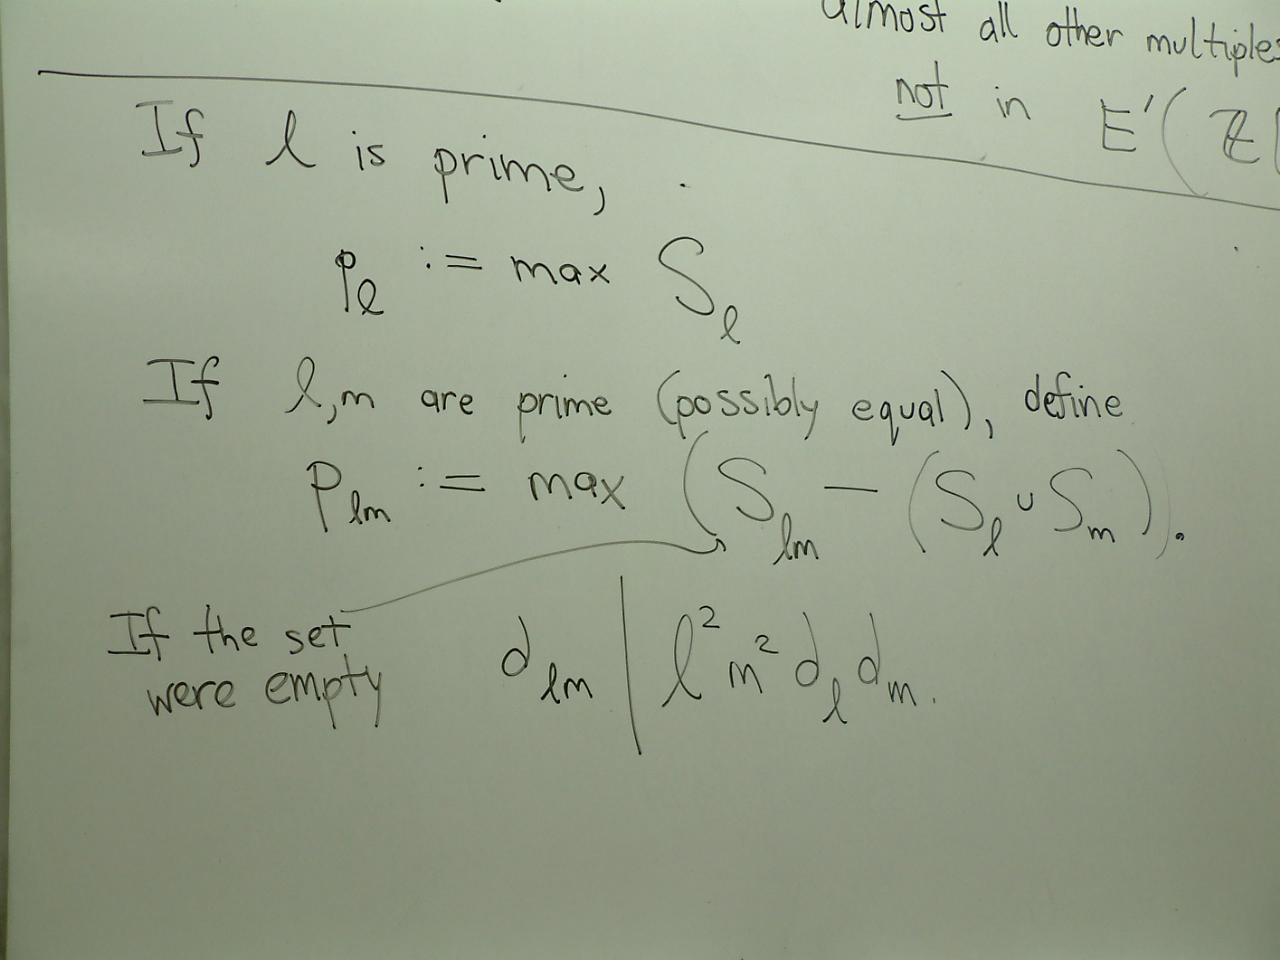 almost all other multiples
not in E′(ℤ[
If ℓ is prime,
p_ℓ := max S_ℓ
If ℓ,m are prime (possibly equal), define
p_ℓm := max (S_ℓm − (S_ℓ ∪ S_m).
If the set
were empty
d_ℓm | ℓ² m² d_ℓ d_m.